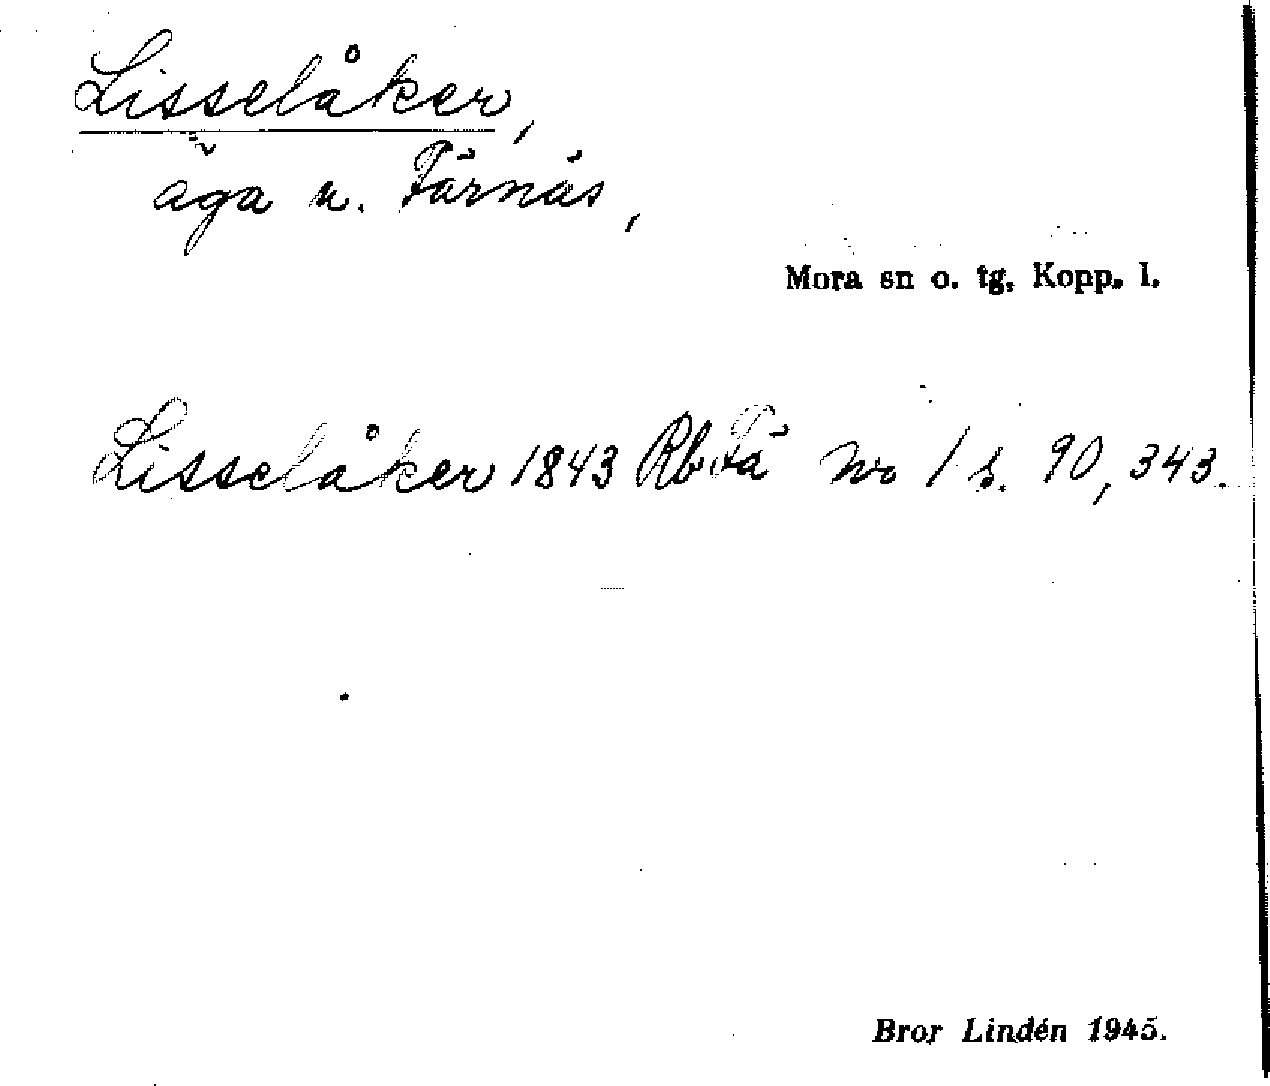 Lisselåker,
äga u. Färnäs,
Mora sn o. tg, Kopp. l.
Lisselåker 1843 Rb Fä nr 1 s. 90, 343.
Bror Lindén 1945.